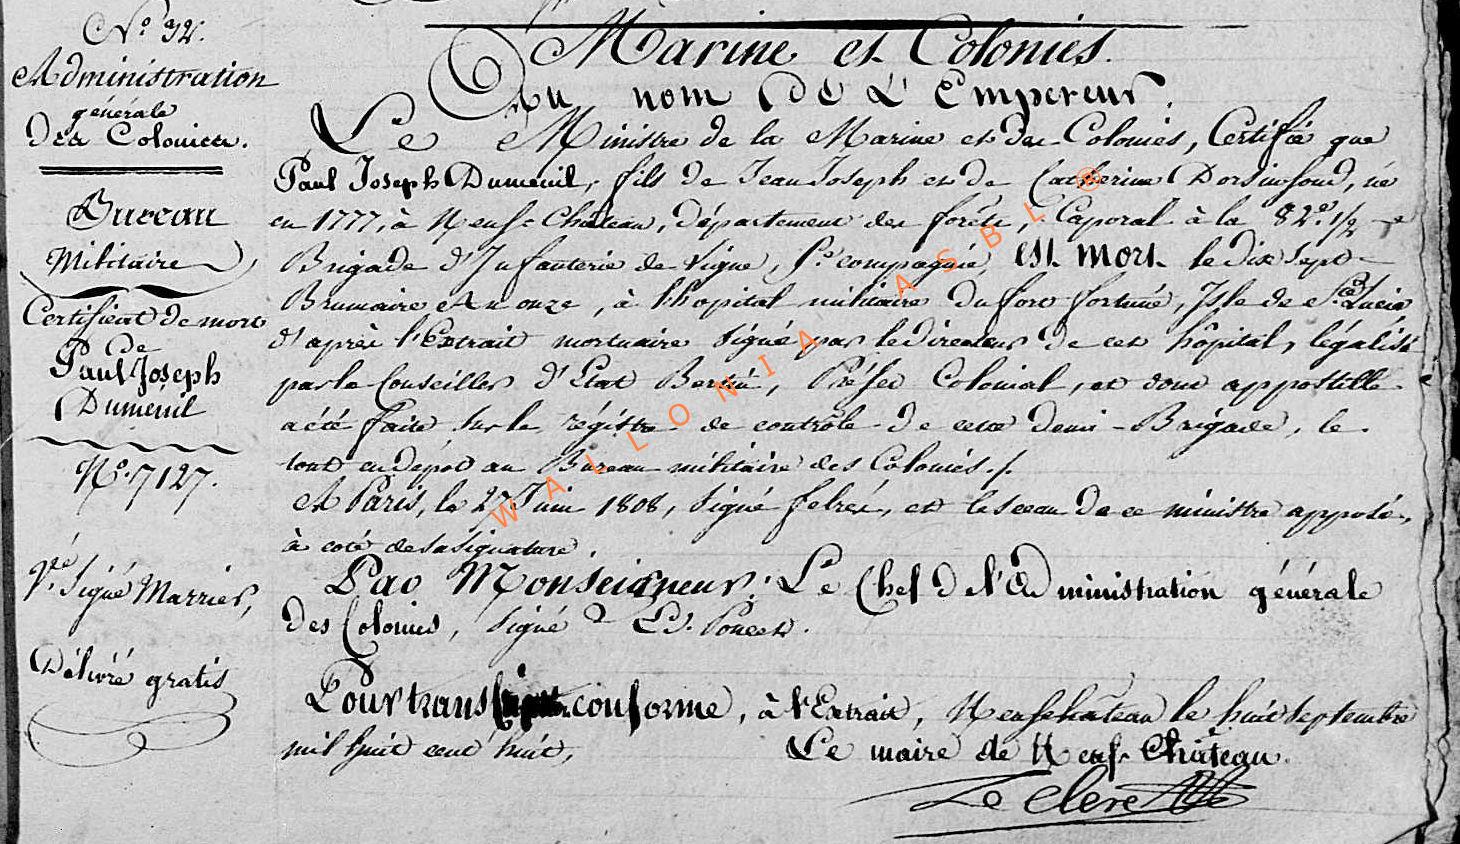 N.º 32.
Administration
générale
Des Colonies.
Bureau
Militaire
Certificat de mort
de
Paul Joseph
Dumenil
N.º 7127.
Vté. Signé Marrier,
Délivré gratis
Marine et Colonies.
Au nom de L'Empereur.
Le Ministre de la Marine et des Colonies, Certifie que
Paul Joseph Dumenil, fils de Jean Joseph et de Catherine Dorsinfond, né
en 1777, à Neuf-Château, département des forêts, Caporal à la 82.e 1/2
Brigade d'Infanterie de ligne, 1.e compagnie, est mort le dix sept
Brumaire An onze, à l'hopital militaire du fort fortuné, Isle de Ste. Lucie,
d'après l'Extrait mortuaire signé par le directeur de cet hôpital, légalisé
par le Conseiller d'Etat Bertin, Préfet Colonial, et dont appostille
a été faite sur le régistre de contrôle de cette demi-Brigade, le
tout en dépot au Bureau militaire des Colonies./.
A Paris, le 27 Juin 1808, signé felrei, et le sceau de ce ministre apposé,
à coté de sa signature.
Par Monseigneur: Le Chef de l'Administration générale
des Colonies, signé Ed. Poncet.
Pour trans conforme, à l'Extrait, Neufchateau le huit septembre
mil huit cent huit,
Le maire de Neuf-Château.
Le Clere
WALLONIA ASBL ®